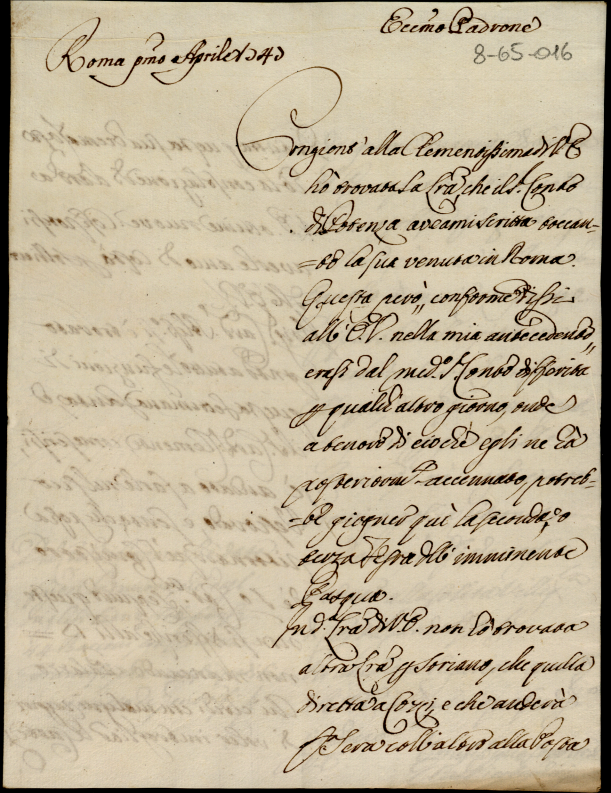 Eccmo Padrone
8-65-016
Roma pmo Aprile 1741
Congionto alla Clementissima di V.E.
hò trovata la Lra, che il Sr. Conte
di Potenza aveami scritta toccan=
=te la sua venuta in Roma.
Questa però, conforme dissi
all' E.V. nella mia antecedente,
erasi dal med.o Sr. Conte differita
p qualch' altro giorno, onde
a tenore di ciò che egli ne hà
posteriorm.te accennato, potreb=
=be giogner quì la seconda, o
terza Festa dell' imminente
Pasqua.
In d.a Lra di V.E. non hò trovata
altra Lra p Soriano, che quella
diretta à Cozzi, e che anderà
sta sera coll' altre alla Posta